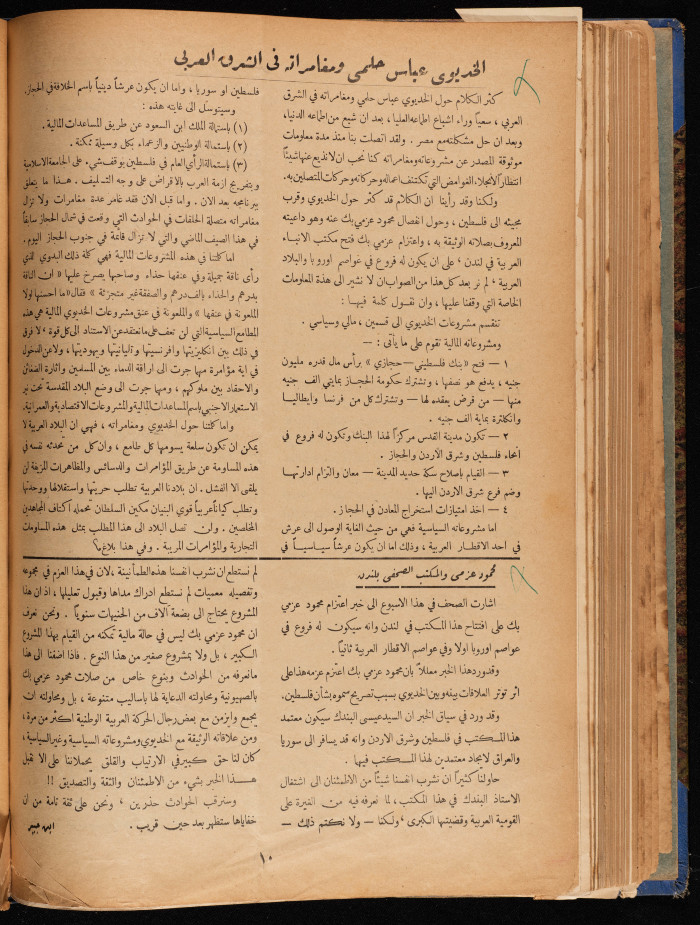 الخديوي عباس حلمي ومغامراته في الشرق العربي
كثر الكلام حول الخديوي عباس حلمي ومغامراته في الشرق
العربي ، سعياً وراء اشباع اطماعه العليا ، بعد ان شبع من اطماعه الدنيا،
وبعد ان حل مشكلته مع مصر . ولقد اتصلت بنا منذ مدة معلومات
موثوقة المصدر عن مشروعاته ومغامراته كنا نحب ان لا نذيع عنها شيئاً
انتظاراً لانجلاء الغوامض التي تكتنف اعماله وحركاته وحركات المتصلين به.
ولكنا وقد رأينا ان الكلام قد كثر حول الخديوي وقرب
مجيئه الى فلسطين ، وحول انفصال محمود عزمي بك عنه وهو داعيته
المعروف بصلاته الوثيقة به ، واعتزام عزمي بك فتح مكتب الانباء
العربية في لندن ، على ان يكون له فروع في عواصم اوروبا والبلاد
العربية ، لم نر بعد كل هذا من الصواب ان لا نشير الى هذة المعلومات
الخاصة التي وقفنا عليها ، وان نقول كلمة فيها :
تنقسم مشروعات الخديوي الى قسمين ، مالي وسياسي .
ومشروعاته المالية تقوم على ما يأتي : —
١ — فتح « بنك فلسطيني — حجازي » برأس مال قدره مليون
جنيه ، يدفع هو نصفها ، وتشترك حكومة الحجاز بمايتي الف جنيه
منها — من قرض يعقده لها — وتشترك كل من فرنسا وايطاليا
وانكلترة بماية الف جنيه .
٢ — تكون مدينة القدس مركزاً لهذا البنك وتكون له فروع في
انحاء فلسطين وشرق الاردن والحجاز .
٣ — القيام باصلاح سكة حديد المدينة — معان والتزام ادارتها
وضم فرع شرق الاردن اليها .
٤ — اخذ امتيازات استخراج المعادن في الحجاز .
اما مشروعاته السياسية فهي من حيث الغاية الوصول الى عرش
في احد الاقطار العربية ، وذلك اما ان يكون عرشاً سياسياً في
فلسطين او سوريا ، واما ان يكون عرشاً دينياً باسم الخلافة في الحجاز.
وسيتوسل الى غايته هذه :
(١) باستمالة الملك ابن السعود عن طريق المساعدات المالية .
(٢) باستمالة الوطنيين والزعماء بكل وسيلة ممكنة .
(٣) باستمالة الرأي العام في فلسطين بوقف شيء على الجامعة الاسلامية
وبتفريج ازمة العرب بالاقراض على وجه التسليف . هذا ما يتعلق
ببرنامجه بعد الان . واما قبل الان فقد غامر عدة مغامرات ولا تزال
مغامراته متصلة الحلقات في الحوادث التي وقعت في شمال الحجاز سابقاً
في هذا الصيف الماضي والتي لا تزال قائمة في جنوب الحجاز اليوم .
اما كلمتنا في هذه المشروعات المالية فهي كلمة ذلك البدوي الذي
رأى ناقة جميلة وفي عنقها حذاء وصاحبها يصرخ عليها « ان الناقة
بدرهم والحذاء بالف درهم والصفقة غير متجزئة » فقال « ما احسنها لولا
الملعونة في عنقها » والملعونة في عنق مشروعات الخديوي المالية هي هذه
المطامع السياسية التي لن تعف على ما نعتقد عن الاستناد الى كل قوة « لا فرق
في ذلك بين انكليزيتها وافرنسيتها وايطاليتها ويهوديتها ، ولا عن الدخول
في اية مؤامرة مهما جرت الى اراقة الدماء بين المسلمين واثارة الضغائن
والاحقاد بين ملوكهم ، ومهما جرت الى وضع البلاد المقدسة تحت نير
الاستعمار الاجنبي باسم المساعدات المالية والمشروعات الاقتصادية والعمرانية.
واما كلمتنا حول الخديوي ومغامراته ، فهي ان البلاد العربية لا
يمكن ان تكون سلعة يسومها كل طامع ، وان كل من تحدثه نفسه في
هذه المساومة عن طريق المؤامرات والدسائس والمظاهرات المزيفة لن
يلقى الا الفشل . ان بلادنا العربية تطلب حريتها واستقلالها ووحدتها
وتطلب كياناً عربياً قوي البنيان مكين السلطان تحمله اكتاف المجاهدين
المخلصين . ولن تصل البلاد الى هذا المطلب بمثل هذه المساومات
التجارية والمؤامرات المريبة . وفي هذا بلاغ ؟
محمود عزمي والمكتب الصحفي بلندن
اشارت الصحف في هذا الاسبوع الى خبر اعتزام محمود عزمي
بك على افتتاح هذا المكتب في لندن وانه سيكون له فروع في
عواصم اوروبا اولا وفي عواصم الاقطار العربية ثانياً .
وقد ورد هذا الخبر معللاً بان محمود عزمي بك اعتزم عزمه هذا على
اثر توتر العلاقات بينه وبين الخديوي بسبب تصريح سموه بشأن فلسطين.
وقد ورد في سياق الخبر ان السيد عيسى البندك سيكون معتمد
هذا المكتب في فلسطين وشرق الاردن وانه قد يسافر الى سوريا
والعراق لايجاد معتمدين لهذا المكتب فيها .
حاولنا كثيراً ان نشرب انفسنا شيئاً من الاطمئنان الى اشتغال
الاستاذ البندك في هذا المكتب ، لما نعرفه فيه من الغيرة على
القومية العربية وقضيتها الكبرى ، ولكنا — ولا نكتم ذلك —
لم نستطع ان نشرب انفسنا هذه الطمأنينة ، لان في هذا العزم في مجموعه
وتفصيله معميات لم نستطع ادراك مداها وقبول تعليلها ، اذ ان هذا
المشروع يحتاج الى بضعة آلاف من الجنيهات سنوياً . ونحن نعرف
ان محمود عزمي بك ليس في حالة مالية تمكنه من القيام بهذا المشروع
الكبير ، بل ولا بمشروع صغير من هذا النوع . فاذا اضفنا الى هذا
ما نعرفه من الحوادث وبنوع خاص من صلات محمود عزمي بك
بالصهيونية ومحاولته الدعاية لها باساليب متنوعة ، بل ومحاولته ان
يجمع وايزمن مع بعض رجال الحركة العربية الوطنية اكثر من مرة ،
ومن علاقاته الوثيقة مع الخديوي ومشروعاته السياسية وغير السياسية ،
كان لنا حق كبير في الارتياب والقلق يحملاننا على الا نقبل
هذا الخبر بشيء من الاطمئنان والثقة والتصديق !!
وسنرقب الحوادث حذرين ، ونحن على ثقة تامة من ان
خفاياها ستظهر بعد حين قريب .
ابن جبير
١٠